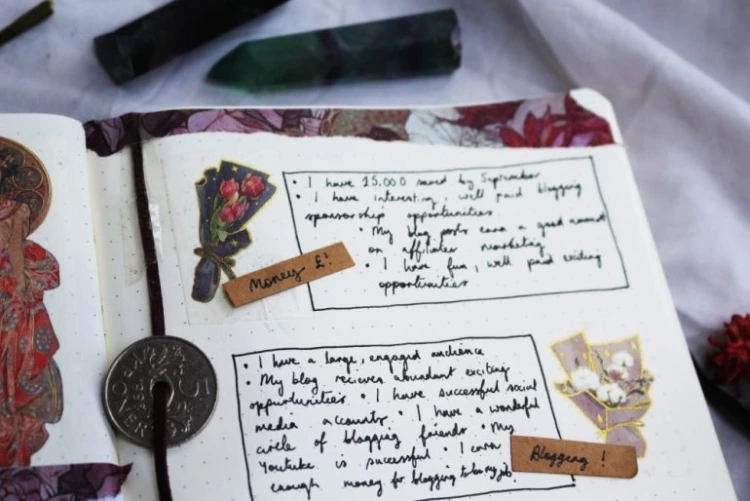 • I have saved by September
• I have interesting, well paid blogging
sponsorship opportunities
• My blog posts earn a good amount
on affiliate marketing
• I have fun, well paid
opportunities
Money £!
• I have a large, engaged audience
• My blog recieves abundant exciting
opportunities • I have successful social
media accounts • I have a wonderful
circle of blogging friends • My
YouTube is successful • I earn
enough money for blogging to be my job
Blogging !
5